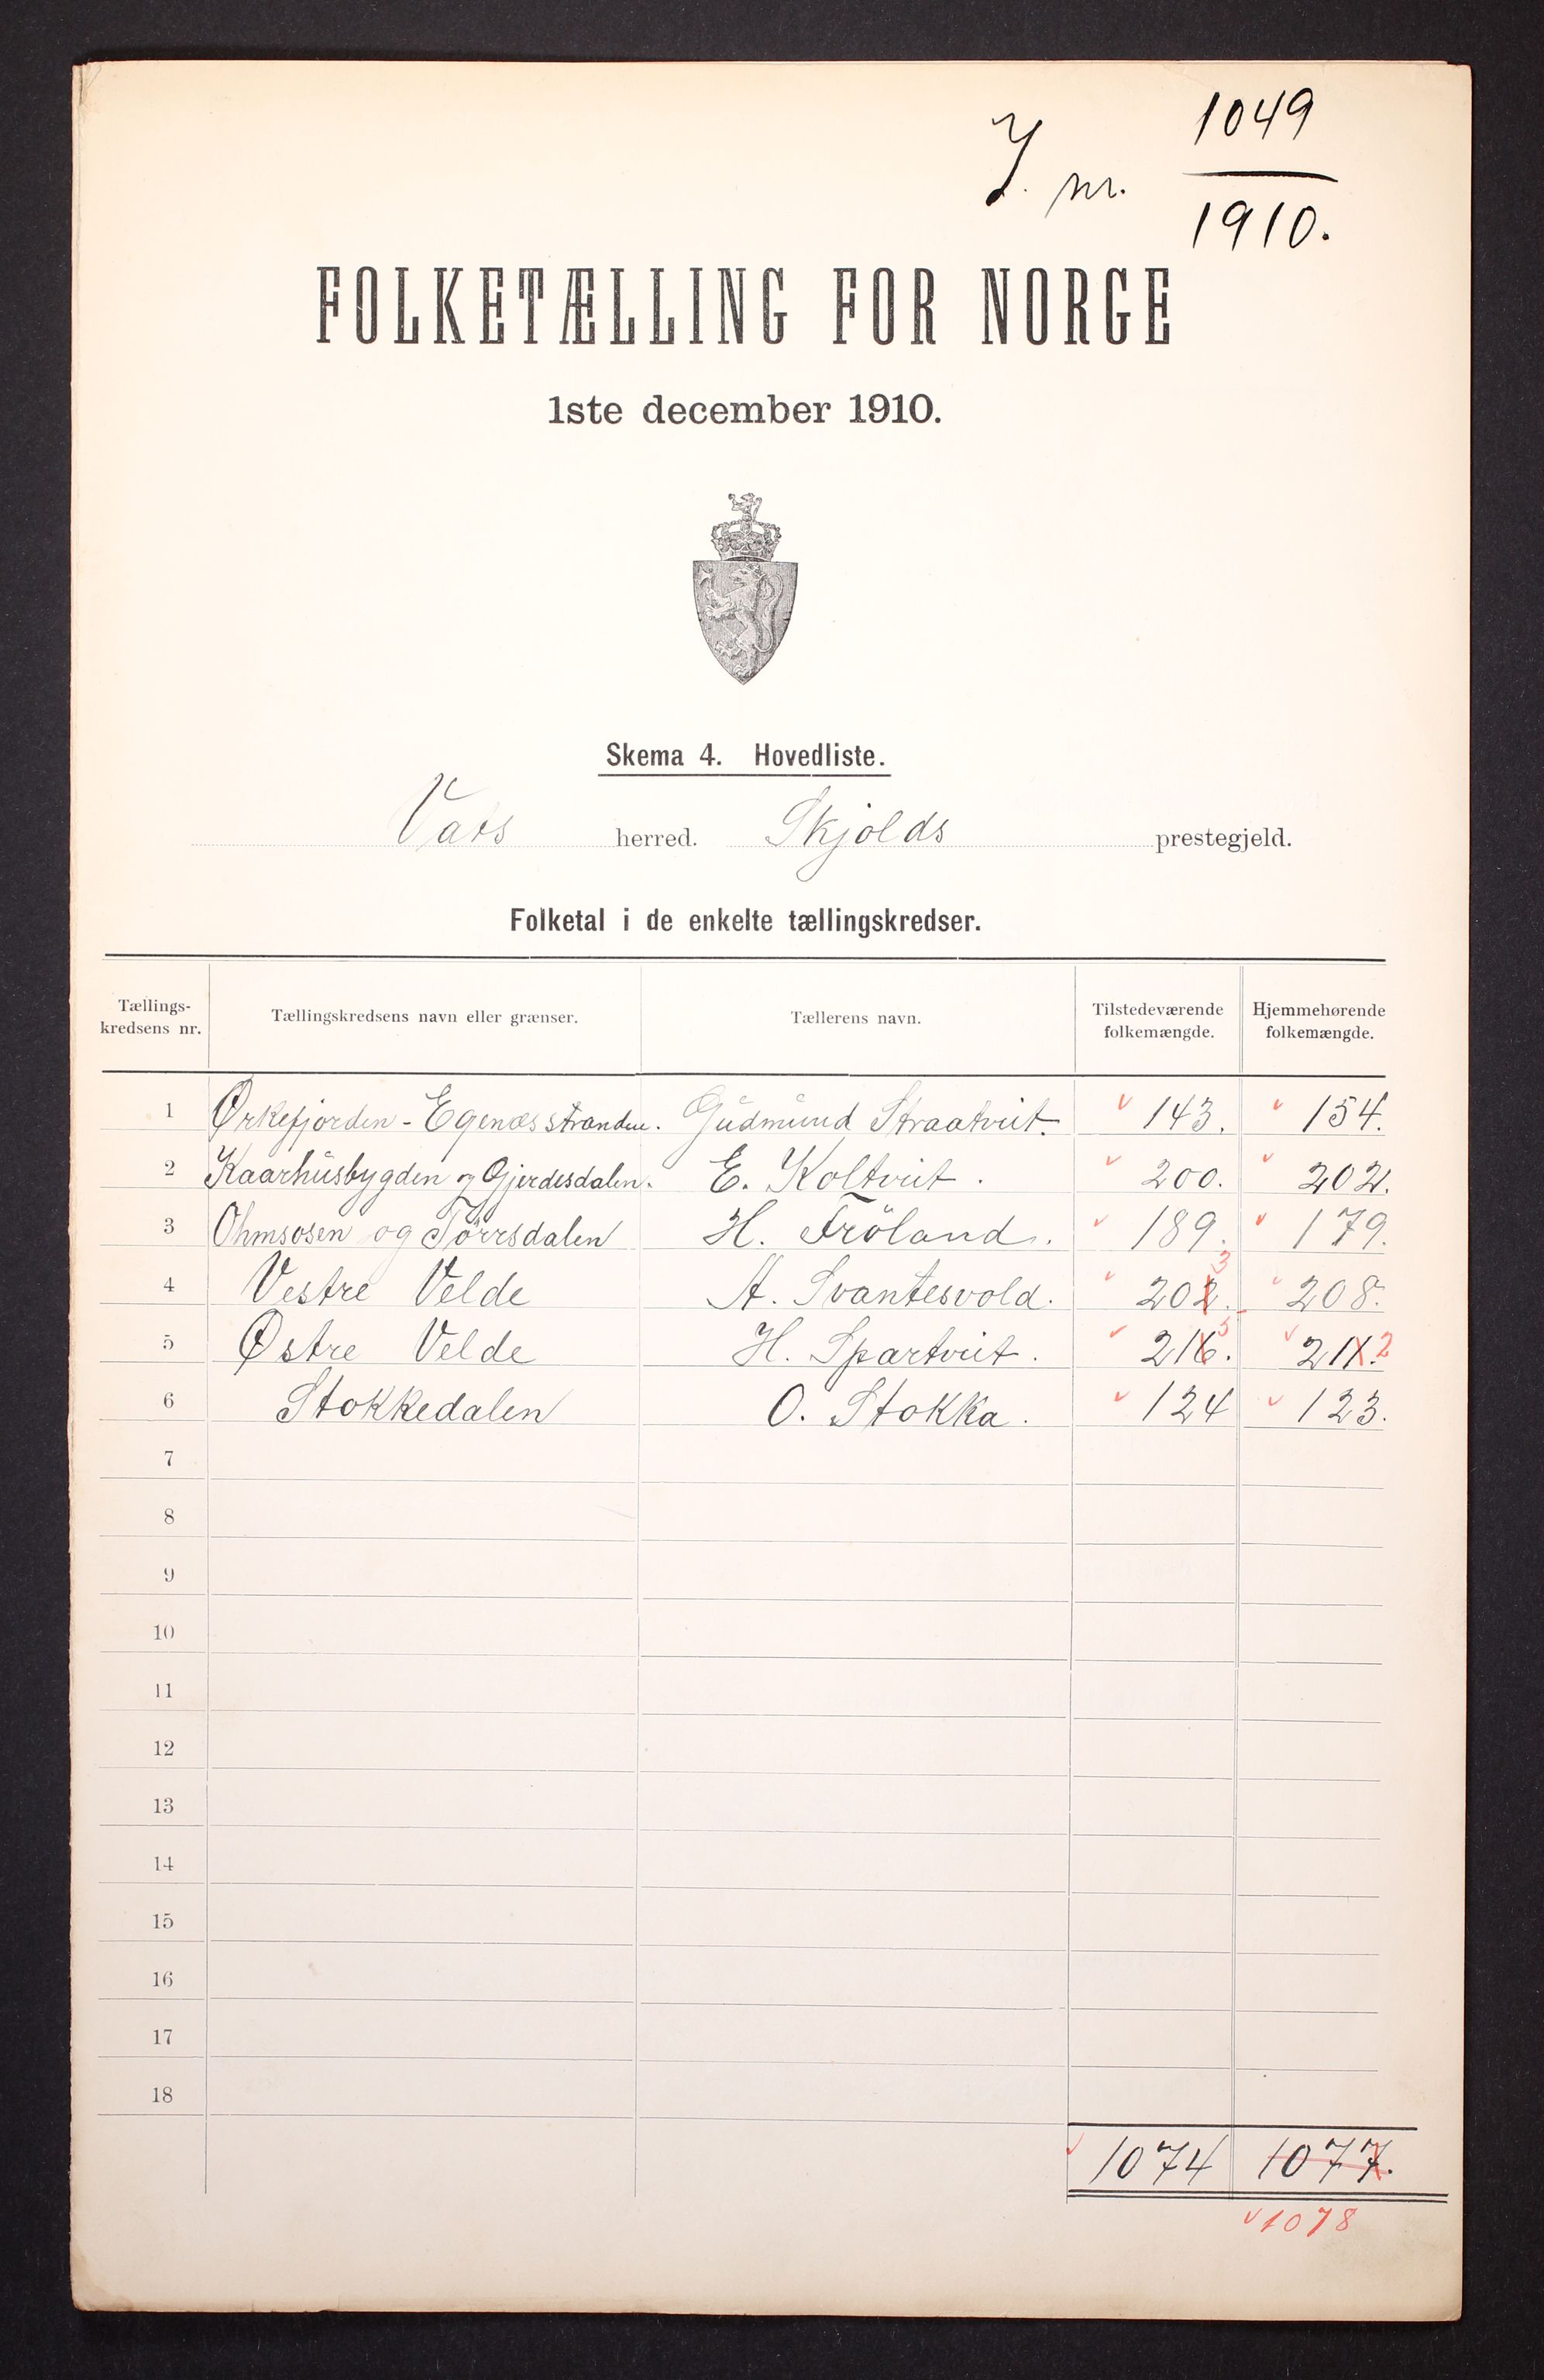 J. nr. 1049
1910.
FOLKETÆLLING FOR NORGE
1ste december 1910.
Skema 4. Hovedliste.
Vats herred. Skjolds prestegjeld.
Folketal i de enkelte tællingskredser.
Tællings-kredsens nr. Tællingskredsens navn eller grænser. Tællerens navn. Tilstedeværende folkemængde. Hjemmehørende folkemængde.
1 Ørkefjorden - Egenæsstranden. Gudmund Straatveit. 143. 154.
2 Kaarhusbygden og Gjerdesdalen. E. Koltveit. 200. 202.
3 Ohmsosen og Törresdalen H. Fröland. 189. 179.
4 Vestre Velde A. Svantesvold. 202. 3 208.
5 Østre Velde H. Spartveit. 216. 5 211. 2
6 Stokkedalen O. Stokka. 124 123.
7
8
9
10
11
12
13
14
15
16
17
18
1074 1077.
1078